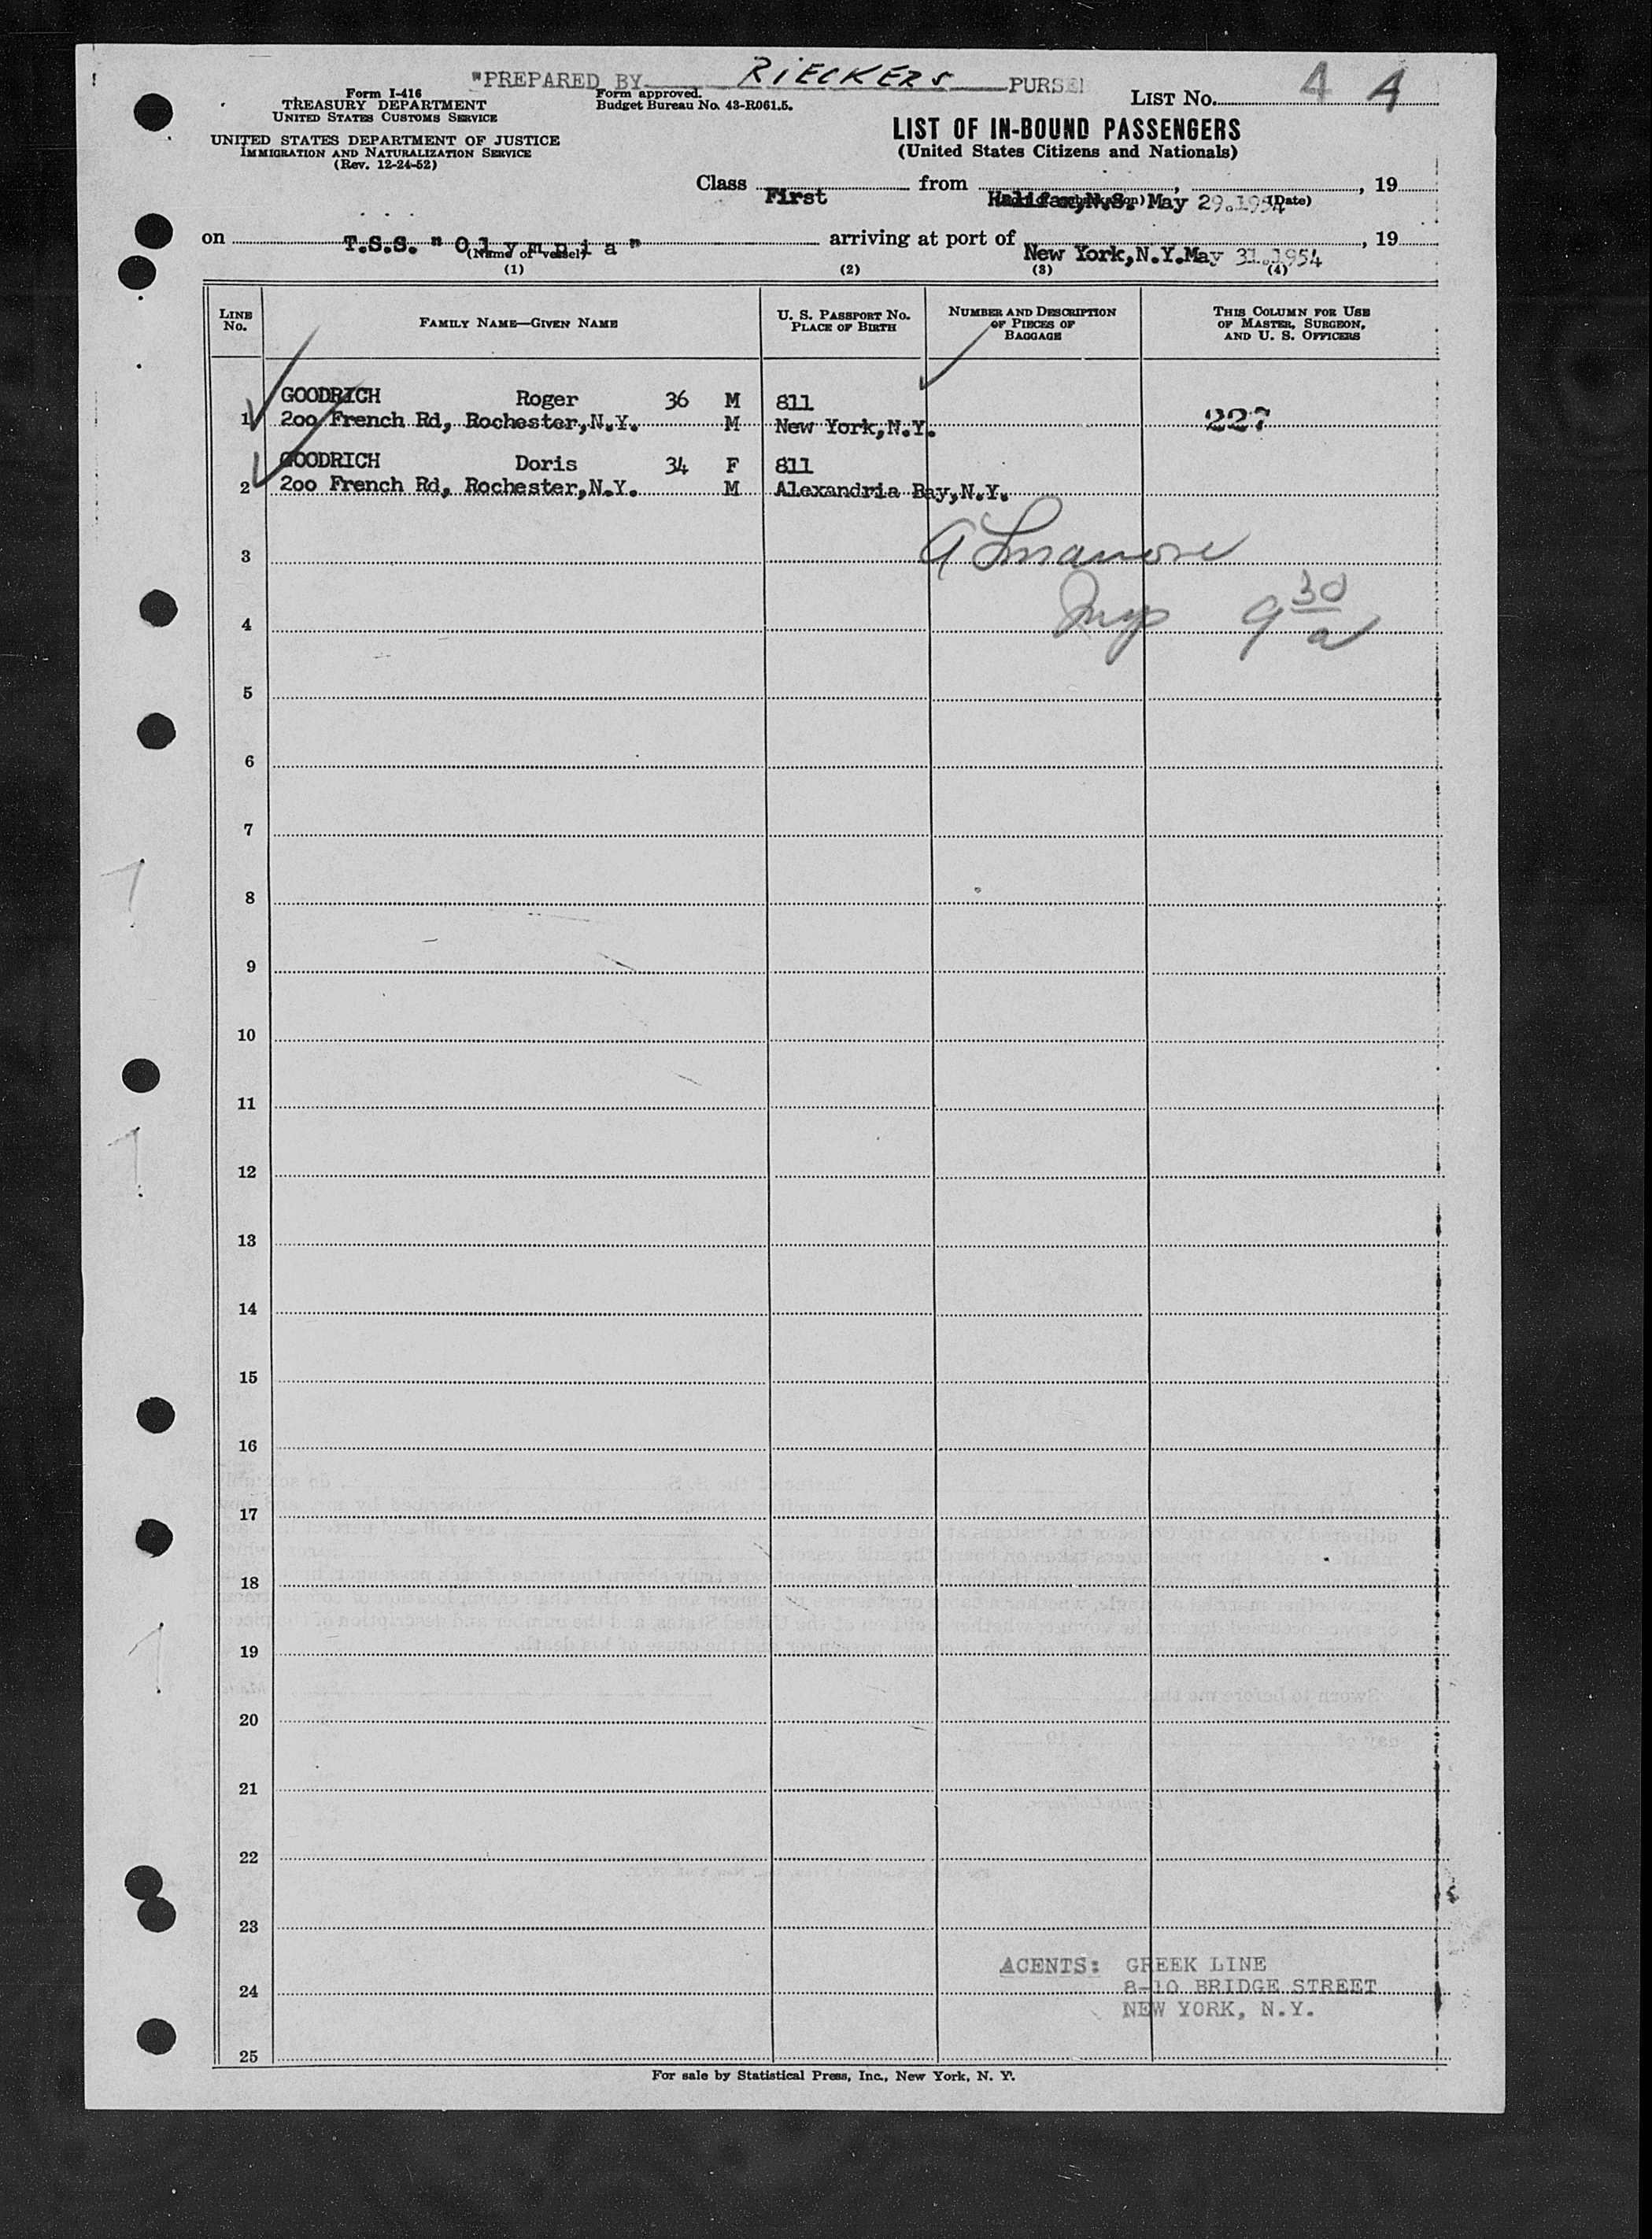 "PREPARED BY RIECKERS PURSE
Form I-416
TREASURY DEPARTMENT
UNITED STATES CUSTOMS SERVICE
UNITED STATES DEPARTMENT OF JUSTICE
IMMIGRATION AND NATURALIZATION SERVICE
(Rev. 12-24-52)
Form approved.
Budget Bureau No. 43-R061.5.
LIST No. 4 4
LIST OF IN-BOUND PASSENGERS
(United States Citizens and Nationals)
Class First from Halifax,N.S. May 29.1954 (Date) , 19
on T.S.S. " O l y m p i a " (Name of vessel) arriving at port of New York,N.Y.May 31.1954 , 19
(1) (2) (3) (4)
LINE No. FAMILY NAME—GIVEN NAME U. S. PASSPORT No. PLACE OF BIRTH NUMBER AND DESCRIPTION OF PIECES OF BAGGAGE THIS COLUMN FOR USE OF MASTER, SURGEON, AND U. S. OFFICERS
GOODRICH Roger 36 M 811
1 2oo French Rd, Rochester,N.Y. M New York,N.Y. 227
GOODRICH Doris 34 F 811
2 2oo French Rd, Rochester,N.Y. M Alexandria Bay,N.Y.
3
4 9 30 a
5
6
7
8
9
10
11
12
13
14
15
16
17
18
19
20
21
22
23
ACENTS: GREEK LINE
24 8-10 BRIDGE STREET
NEW YORK, N.Y.
25
For sale by Statistical Press, Inc., New York, N. Y.